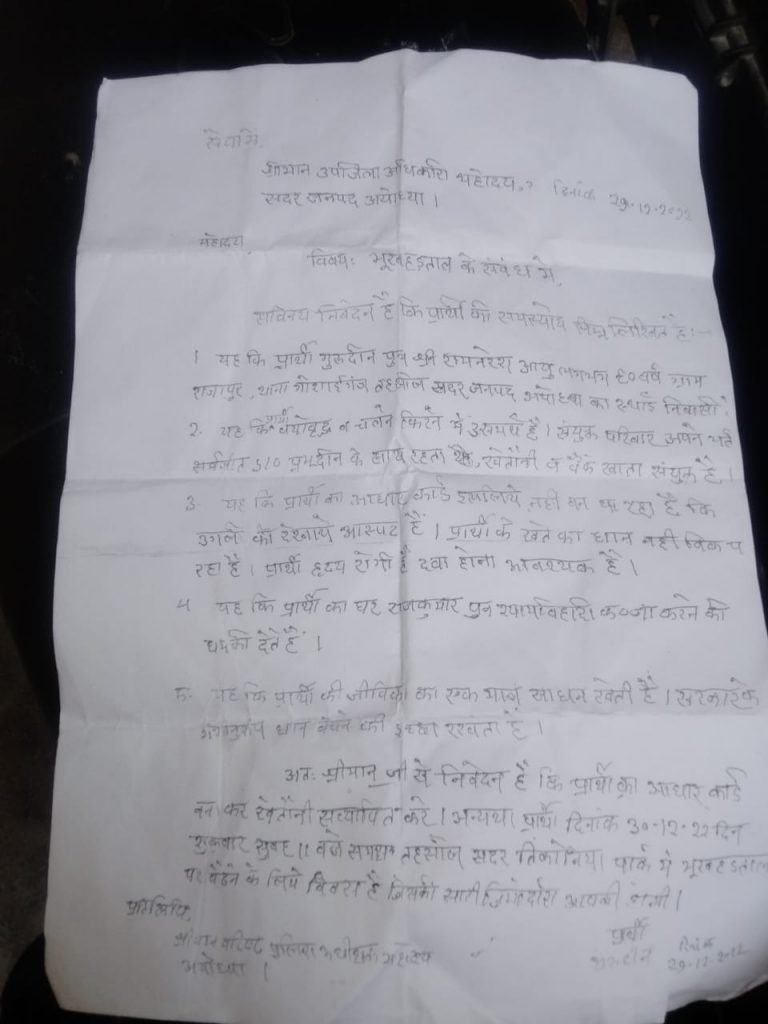 सेवामे,
श्रीमान उपजिला अधिकारी महोदय, दिनांक 29-12-2022
सदर जनपद अयोध्या ।
महोदय,
विषय: भूखहड़ताल के संबंध मे,
सविनय निवेदन है कि प्रार्थी की समस्याये निम्न लिखित है:-
1 यह कि प्रार्थी गुरुदीन पुत्र श्री रामनरेश आयु लगभग ८० वर्ष ग्राम
राजापुर, थाना गोशाईगंज तहसील सदर जनपद अयोध्या का स्थाई निवासी है
2- यह कि प्रार्थी वयोवृद्ध व चलने फिरने मे असमर्थ है । संयुक्त परिवार अपने
सर्वजीत S/O के साथ रहता है, खेतौनी व बैंक खाता संयुक्त है ।
3- यह कि प्रार्थी का आधार कार्ड इसलिये नही बन पा रहा है कि
उगली की रेखाये आस्पट हैं । प्रार्थी के खेत का धान नही बिक प
रहा है । प्रार्थी हृदय रोगी है दवा होना आवश्यक है ।
4 यह कि प्रार्थी का घर राजकुमार पुत्र श्यामबिहारी कब्जा करने की
धमकी देते हैं ।
5- यह कि प्रार्थी की जीविका का एक मात्र साधन खेती है । सरकार के
धान बेचने की इच्छा रखता है ।
अत: श्रीमान् जी से निवेदन है कि प्रार्थी का आधार कार्ड
बना कर खेतौनी सत्यापित करे । अन्यथा प्रार्थी दिनांक 30-12-22 दिन
शुक्रवार सुबह 11 बजे समय तहसील सदर तिकोनिया पार्क मे भूखहड़ताल
पर बैठने के लिये विवश है जिसकी सारी जिम्मेदारी आपकी होगी ।
प्रतिलिपि,
श्रीमान वरिष्ट पुलिस अधीक्षक महोदय
अयोध्या ।
प्रार्थी
दिनांक
29-12-2022